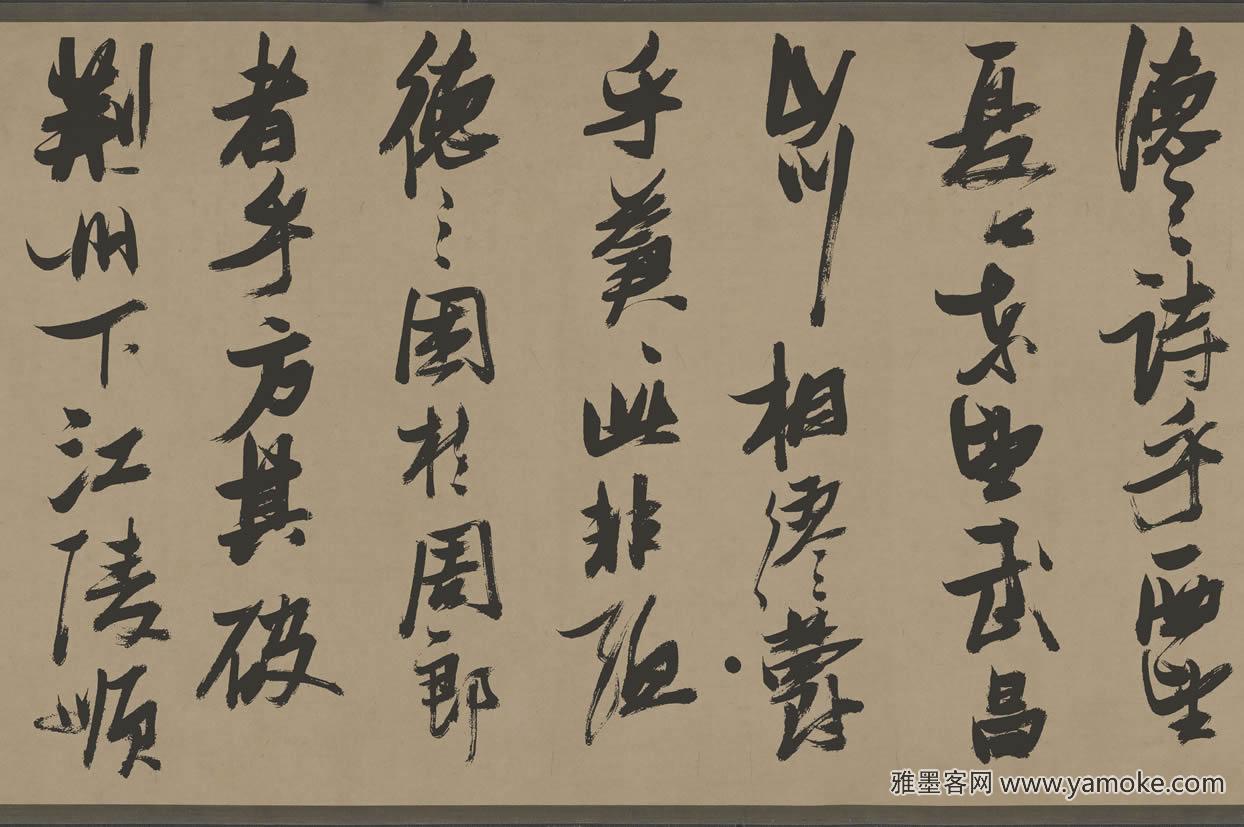 德之詩乎西望
夏口東望武昌
山川相繆鬱
乎蒼、此非孟
德之困於周郎
者乎方其破
荊州下江陵順
雅墨客网 www.yamoke.com